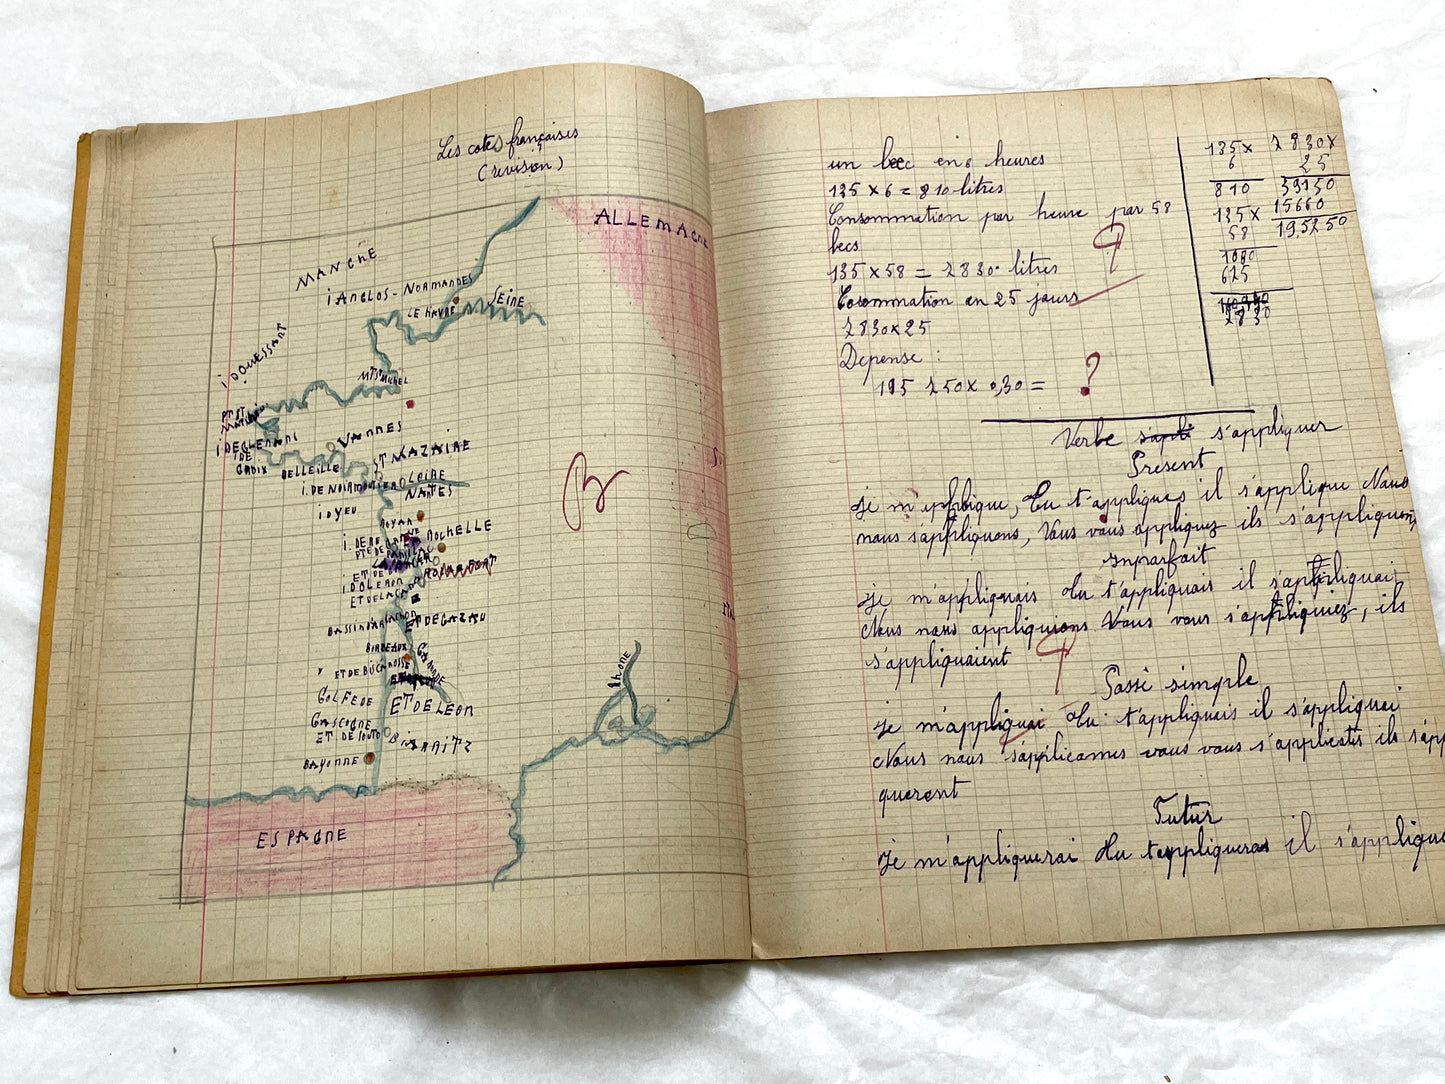 Les cotes françaises
(révision)
ALLEMAGNE
MANCHE
i ANGLOS-NORMANDES
LE HAVRE
SEINE
i D'OUESSANT
MT ST MICHEL
PT ST
MATHIEU
i DE GLENANS
VANNES
I DE
GROIX
BELLEILE
ST NAZAIRE
i. DE NOIRMOUTIER
LOIRE
NANTES
i D YEU
ROYAN
I. DE RE
ROCHELLE
ROCHEFORT
I D OLERON
ET DE LACANAU
BASSIN D'ARCACHON
ET DE CAZAU
BORDEAUX
ET DE BISCAROSSE
GOLFE DE
GASCOGNE
ET DE LEON
ET DE SOUSTO
BIARRITZ
BAYONNE
RHONE
ESPAGNE
B
un bec en 6 heures
135 x 6 = 810 litres
Consommation par heure par 58
becs
135 x 58 = 7830 litres
Consommation en 25 jours
7830 x 25
Depense :
195 750 x 0,30 =
?
135 x
6
810
135 x
58
1080
675
7830
7830 x
25
39150
15660
195,250
Verbe s'apli s'appliquer
Présent
Je m'applique, tu t'appliques il s'applique Nous
nous appliquons, Vous vous appliquez ils s'appliquent
imparfait
Je m'appliquais tu t'appliquais il s'appliquait
Nous nous appliquions Vous vous s'appliquiez, ils
s'appliquaient
Passé simple
je m'appliquai tu t'appliquais il s'appliquai
Nous nous s'applicames vous vous s'applicatis ils s'app
querent
Futur
Je m'appliquerai tu t'appliqueras il s'applique